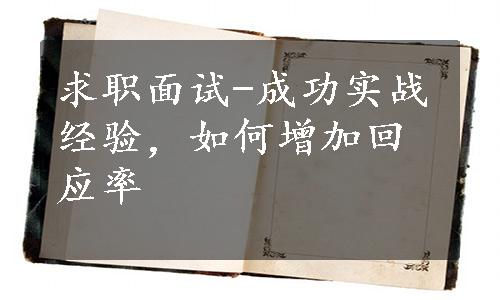 求职面试-成功实战
经验，如何增加回
应率